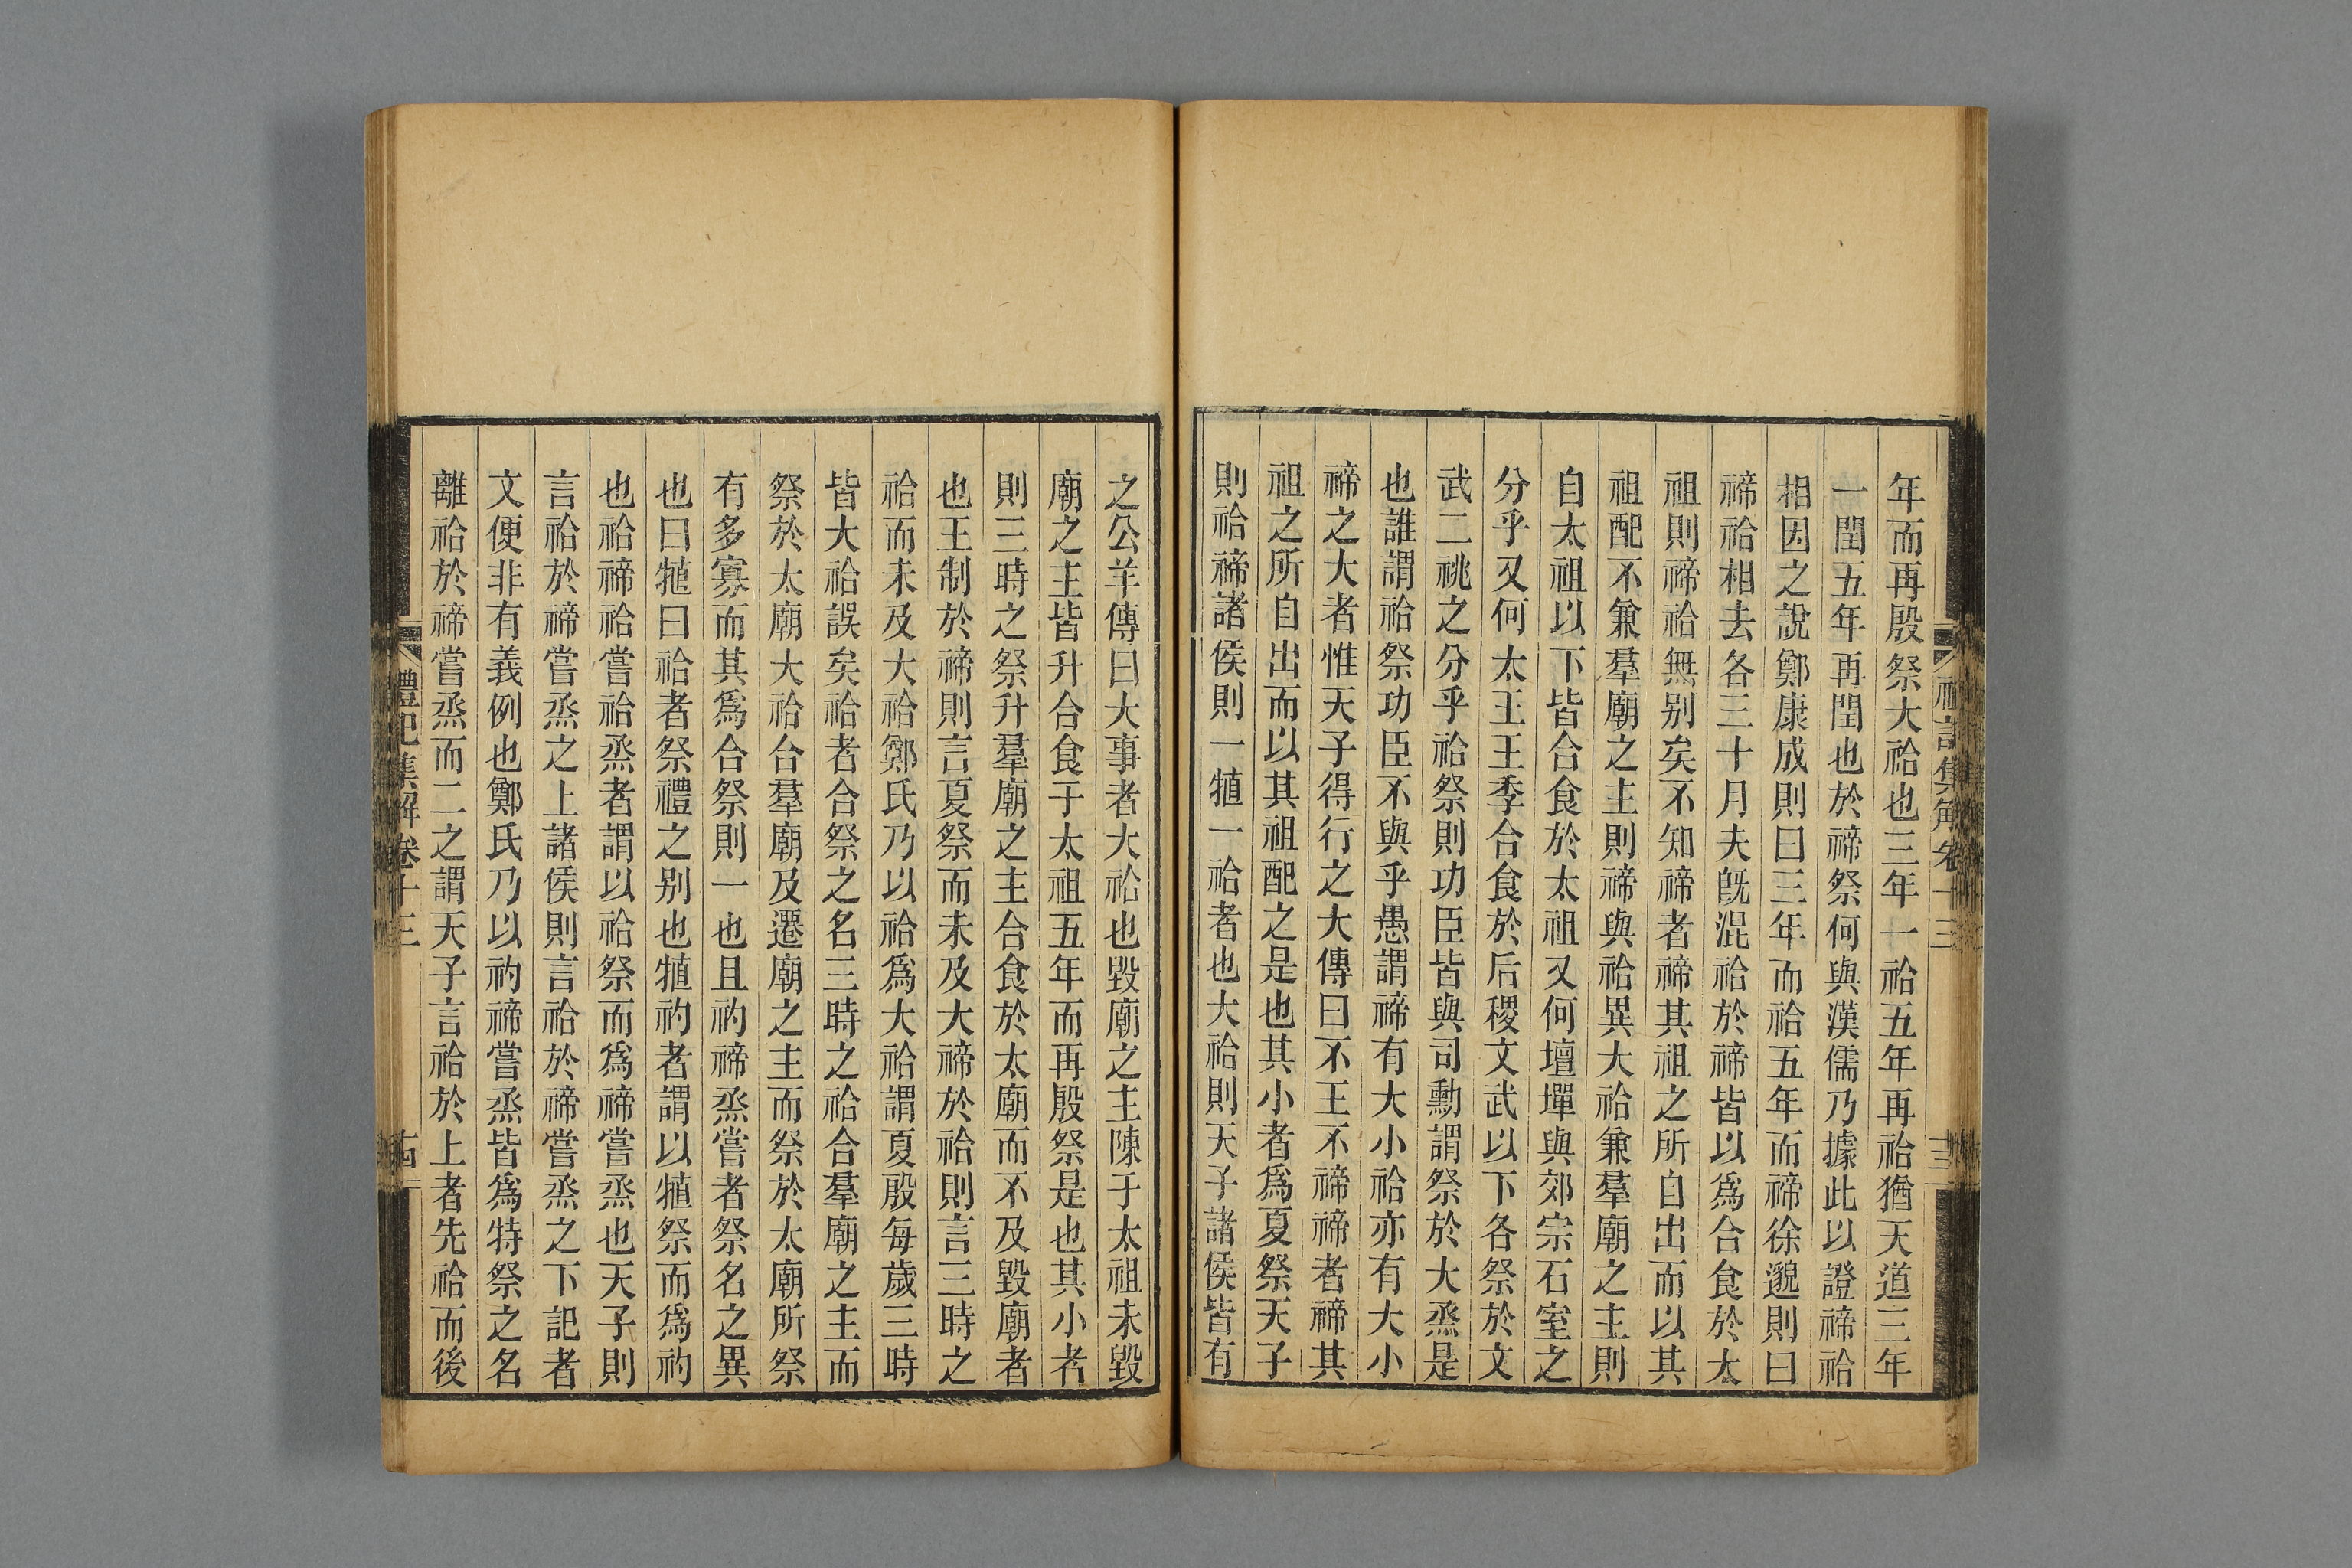 年而再殷祭大祫也三年一祫五年再祫猶天道三年
一閏五年再閏也於禘祭何與漢儒乃據此以證禘祫
相因之說鄭康成則曰三年而祫五年而禘徐邈則曰
禘祫相去各三十月夫旣混祫於禘皆以爲合食於太
祖則禘祫無别矣不知禘者禘其祖之所自出而以其
祖配不兼羣廟之主則禘與祫異大祫兼羣廟之主則
自太祖以下皆合食於太祖又何壇墠與郊宗石室之
分乎又何太王王季合食於后稷文武以下各祭於文
武二祧之分乎祫祭則功臣皆與司勳謂祭於大烝是
也誰謂祫祭功臣不與乎愚謂禘有大小祫亦有大小
禘之大者惟天子得行之大傳曰不王不禘禘者禘其
祖之所自出而以其祖配之是也其小者爲夏祭天子
則祫禘諸侯則一犆一祫者也大祫則天子諸侯皆有
禮記集解卷十三
十三
之公羊傳曰大事者大祫也毀廟之主陳于太祖未毀
廟之主皆升合食于太祖五年而再殷祭是也其小者
則三時之祭升羣廟之主合食於太廟而不及毀廟者
也王制於禘則言夏祭而未及大禘於祫則言三時之
祫而未及大祫鄭氏乃以祫爲大祫謂夏殷每歲三時
皆大祫誤矣祫者合祭之名三時之祫合羣廟之主而
祭於太廟大祫合羣廟及遷廟之主而祭於太廟所祭
有多寡而其爲合祭則一也且礿禘烝嘗者祭名之異
也曰犆曰祫者祭禮之别也犆礿者謂以犆祭而爲礿
也祫禘祫嘗祫烝者謂以祫祭而爲禘嘗烝也天子則
言祫於禘嘗烝之上諸侯則言祫於禘嘗烝之下記者
文便非有義例也鄭氏乃以礿禘嘗烝皆爲特祭之名
離祫於禘嘗烝而二之謂天子言祫於上者先祫而後
禮記集解卷十三
十四